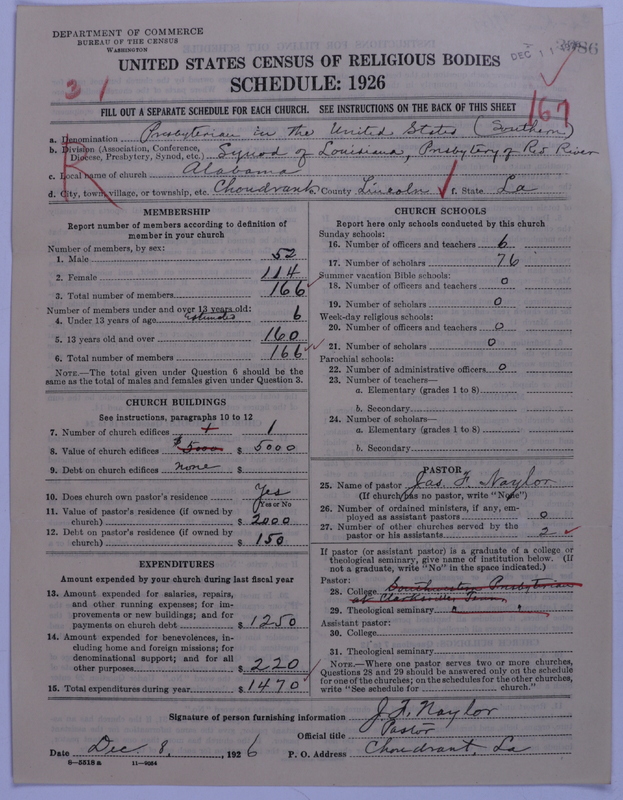 DEPARTMENT OF COMMERCE
BUREAU OF THE CENSUS
WASHINGTON
DEC 11
UNITED STATES CENSUS OF RELIGIOUS BODIES
SCHEDULE: 1926
3 1
167
FILL OUT A SEPARATE SCHEDULE FOR EACH CHURCH. SEE INSTRUCTIONS ON THE BACK OF THIS SHEET
a. Denomination Presbyterian in the United States (Southern)
b. Division (Association, Conference, Diocese, Presbytery, Synod, etc.) Synod of Louisiana, Presbytery of Red River
c. Local name of church Alabama
d. City, town, village, or township, etc. Choudrant e. County Lincoln f. State La
MEMBERSHIP
Report number of members according to definition of
member in your church
Number of members, by sex:
1. Male 52
2. Female 114
3. Total number of members 166
Number of members under and over 13 years old:
4. Under 13 years of age estimated 6
5. 13 years old and over 160
6. Total number of members 166
NOTE.—The total given under Question 6 should be
same as the total of males and females given under Question 3.
CHURCH BUILDINGS
See instructions, paragraphs 10 to 12
7. Number of church edifices 1
8. Value of church edifices $5000 $ 5000
9. Debt on church edifices none $
10. Does church own pastor's residence Yes
(Yes or No)
11. Value of pastor's residence (if owned by
church) $ 2000
12. Debt on pastor's residence (if owned by
church) $ 150
EXPENDITURES
Amount expended by your church during last fiscal year
13. Amount expended for salaries, repairs,
and other running expenses; for im-
provements or new buildings; and for
payments on church debt $ 1250
14. Amount expended for benevolences, in-
cluding home and foreign missions; for
denominational support; and for all
other purposes $ 220
15. Total expenditures during year $ 1470
CHURCH SCHOOLS
Report here only schools conducted by this church
Sunday schools:
16. Number of officers and teachers 6
17. Number of scholars 76
Summer vacation Bible schools:
18. Number of officers and teachers 0
19. Number of scholars 0
Week-day religious schools:
20. Number of officers and teachers 0
21. Number of scholars 0
Parochial schools:
22. Number of administrative officers 0
23. Number of teachers—
a. Elementary (grades 1 to 8)
b. Secondary
24. Number of scholars—
a. Elementary (grades 1 to 8)
b. Secondary
PASTOR
25. Name of pastor Jas. F. Naylor
(If church has no pastor, write "None")
26. Number of ordained ministers, if any, em-
ployed as assistant pastors 0
27. Number of other churches served by the
pastor or his assistants 2
If pastor (or assistant pastor) is a graduate of a college or
theological seminary, give name of institution below. (If
not a graduate, write "No" in the space indicated.)
Pastor:
28. College Southwestern Presbyterian
at Clarksville, Tenn.
29. Theological seminary " "
Assistant pastor:
30. College
31. Theological seminary
NOTE.—Where one pastor serves two or more churches,
Questions 28 and 29 should be answered only on the schedule
for one of the churches; on the schedules for the other churches,
write "See schedule for church."
Signature of person furnishing information J. F. Naylor
Official title Pastor
Date Dec 8, 1926 P. O. Address Choudrant, La
8—5518a 11—9054